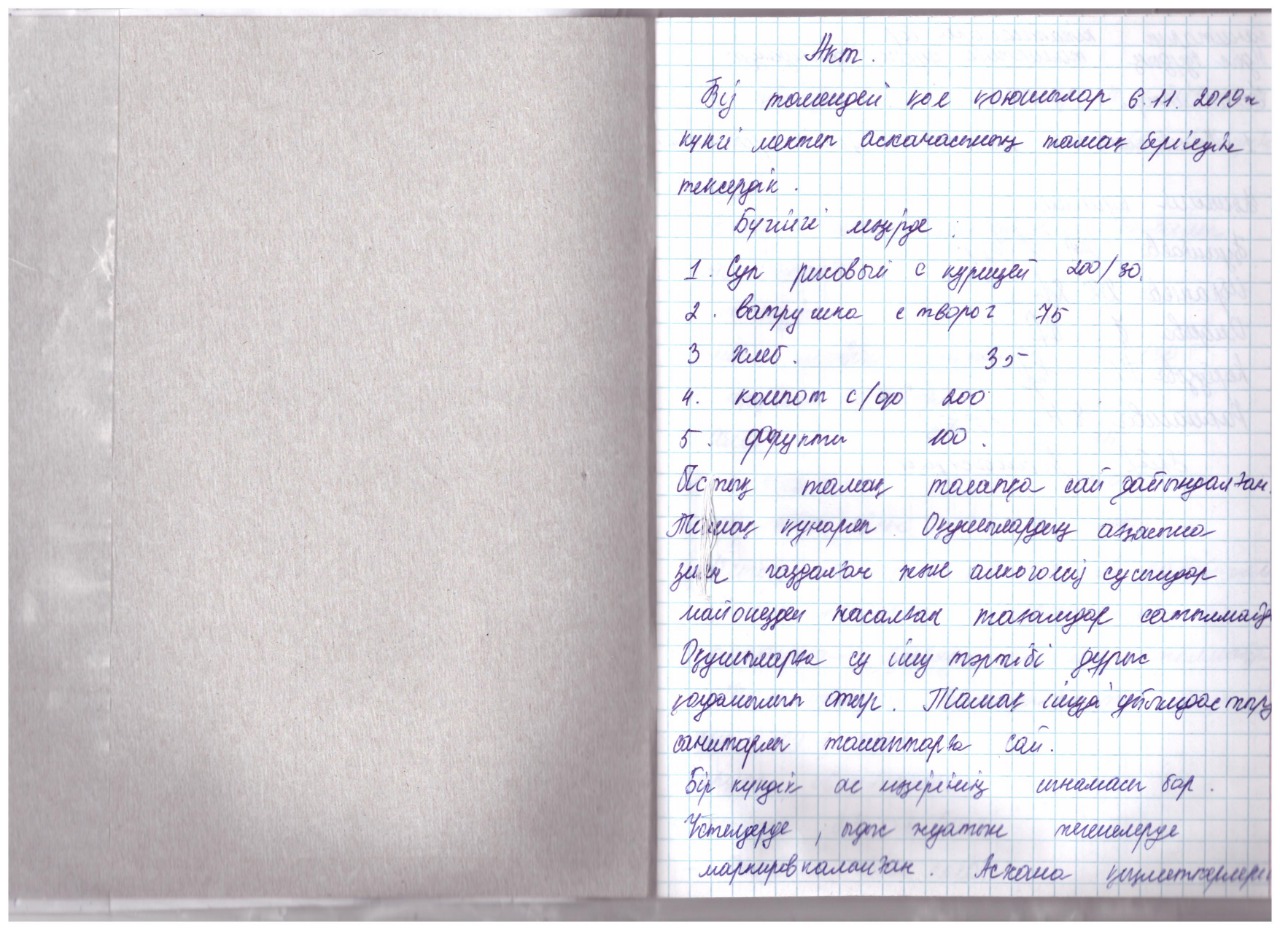 Акт.
Біз төмендегі қол қоюшылар 6.11.2019ж
күнгі мектеп асханасының тамақ берілуін
тексердік.
Бүгінгі мәзірде:
1. Суп рисовый с курицей 200/30
2. ватрушка с творог 75
3 хлеб. 35
4. компот с/ф 200
5. фрукты 100.
Ыстық тамақ талапқа сай дайындалған.
Тамақ құнарлы. Оқушылардың ағзасына
зиян газдалған және алкогольді сусындар
майонезден жасалған тағамдар сатылмайды
Оқушыларға су ішу тәртібі дұрыс
қолданылып отыр. Тамақ ішуді ұйымдастыру
санитарлы талаптарға сай.
Бір күндік ас мәзірінің сынамасы бар.
Үстелдерде, ыдыс жуатын легенелерде
маркировкаланған. Асхана қызметкерлері